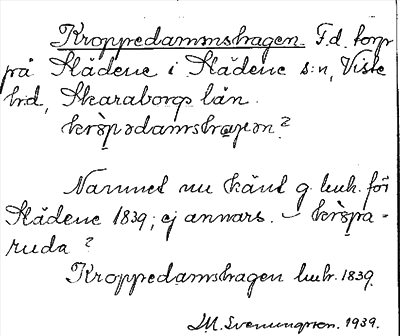 Kroppedammshagen. F.d. torp
på Slädene i Slädene s:n, Viste
hd, Skaraborgs län.
krɔ̀pədamshaɡən?
Namnet nu känt g. huk. för
Slädene 1839; ej annars. – krɔ̀pa-
ruda?
Kroppedamshagen huk. 1839.
M. Svenungsson. 1939.